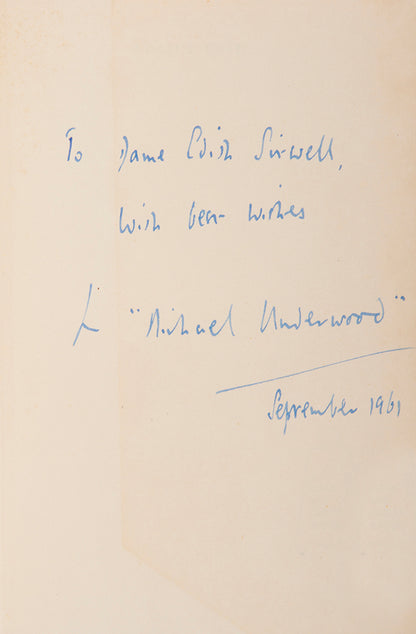 To Dame Edith Sitwell,
With best wishes
"Michael Underwood"
September 1961